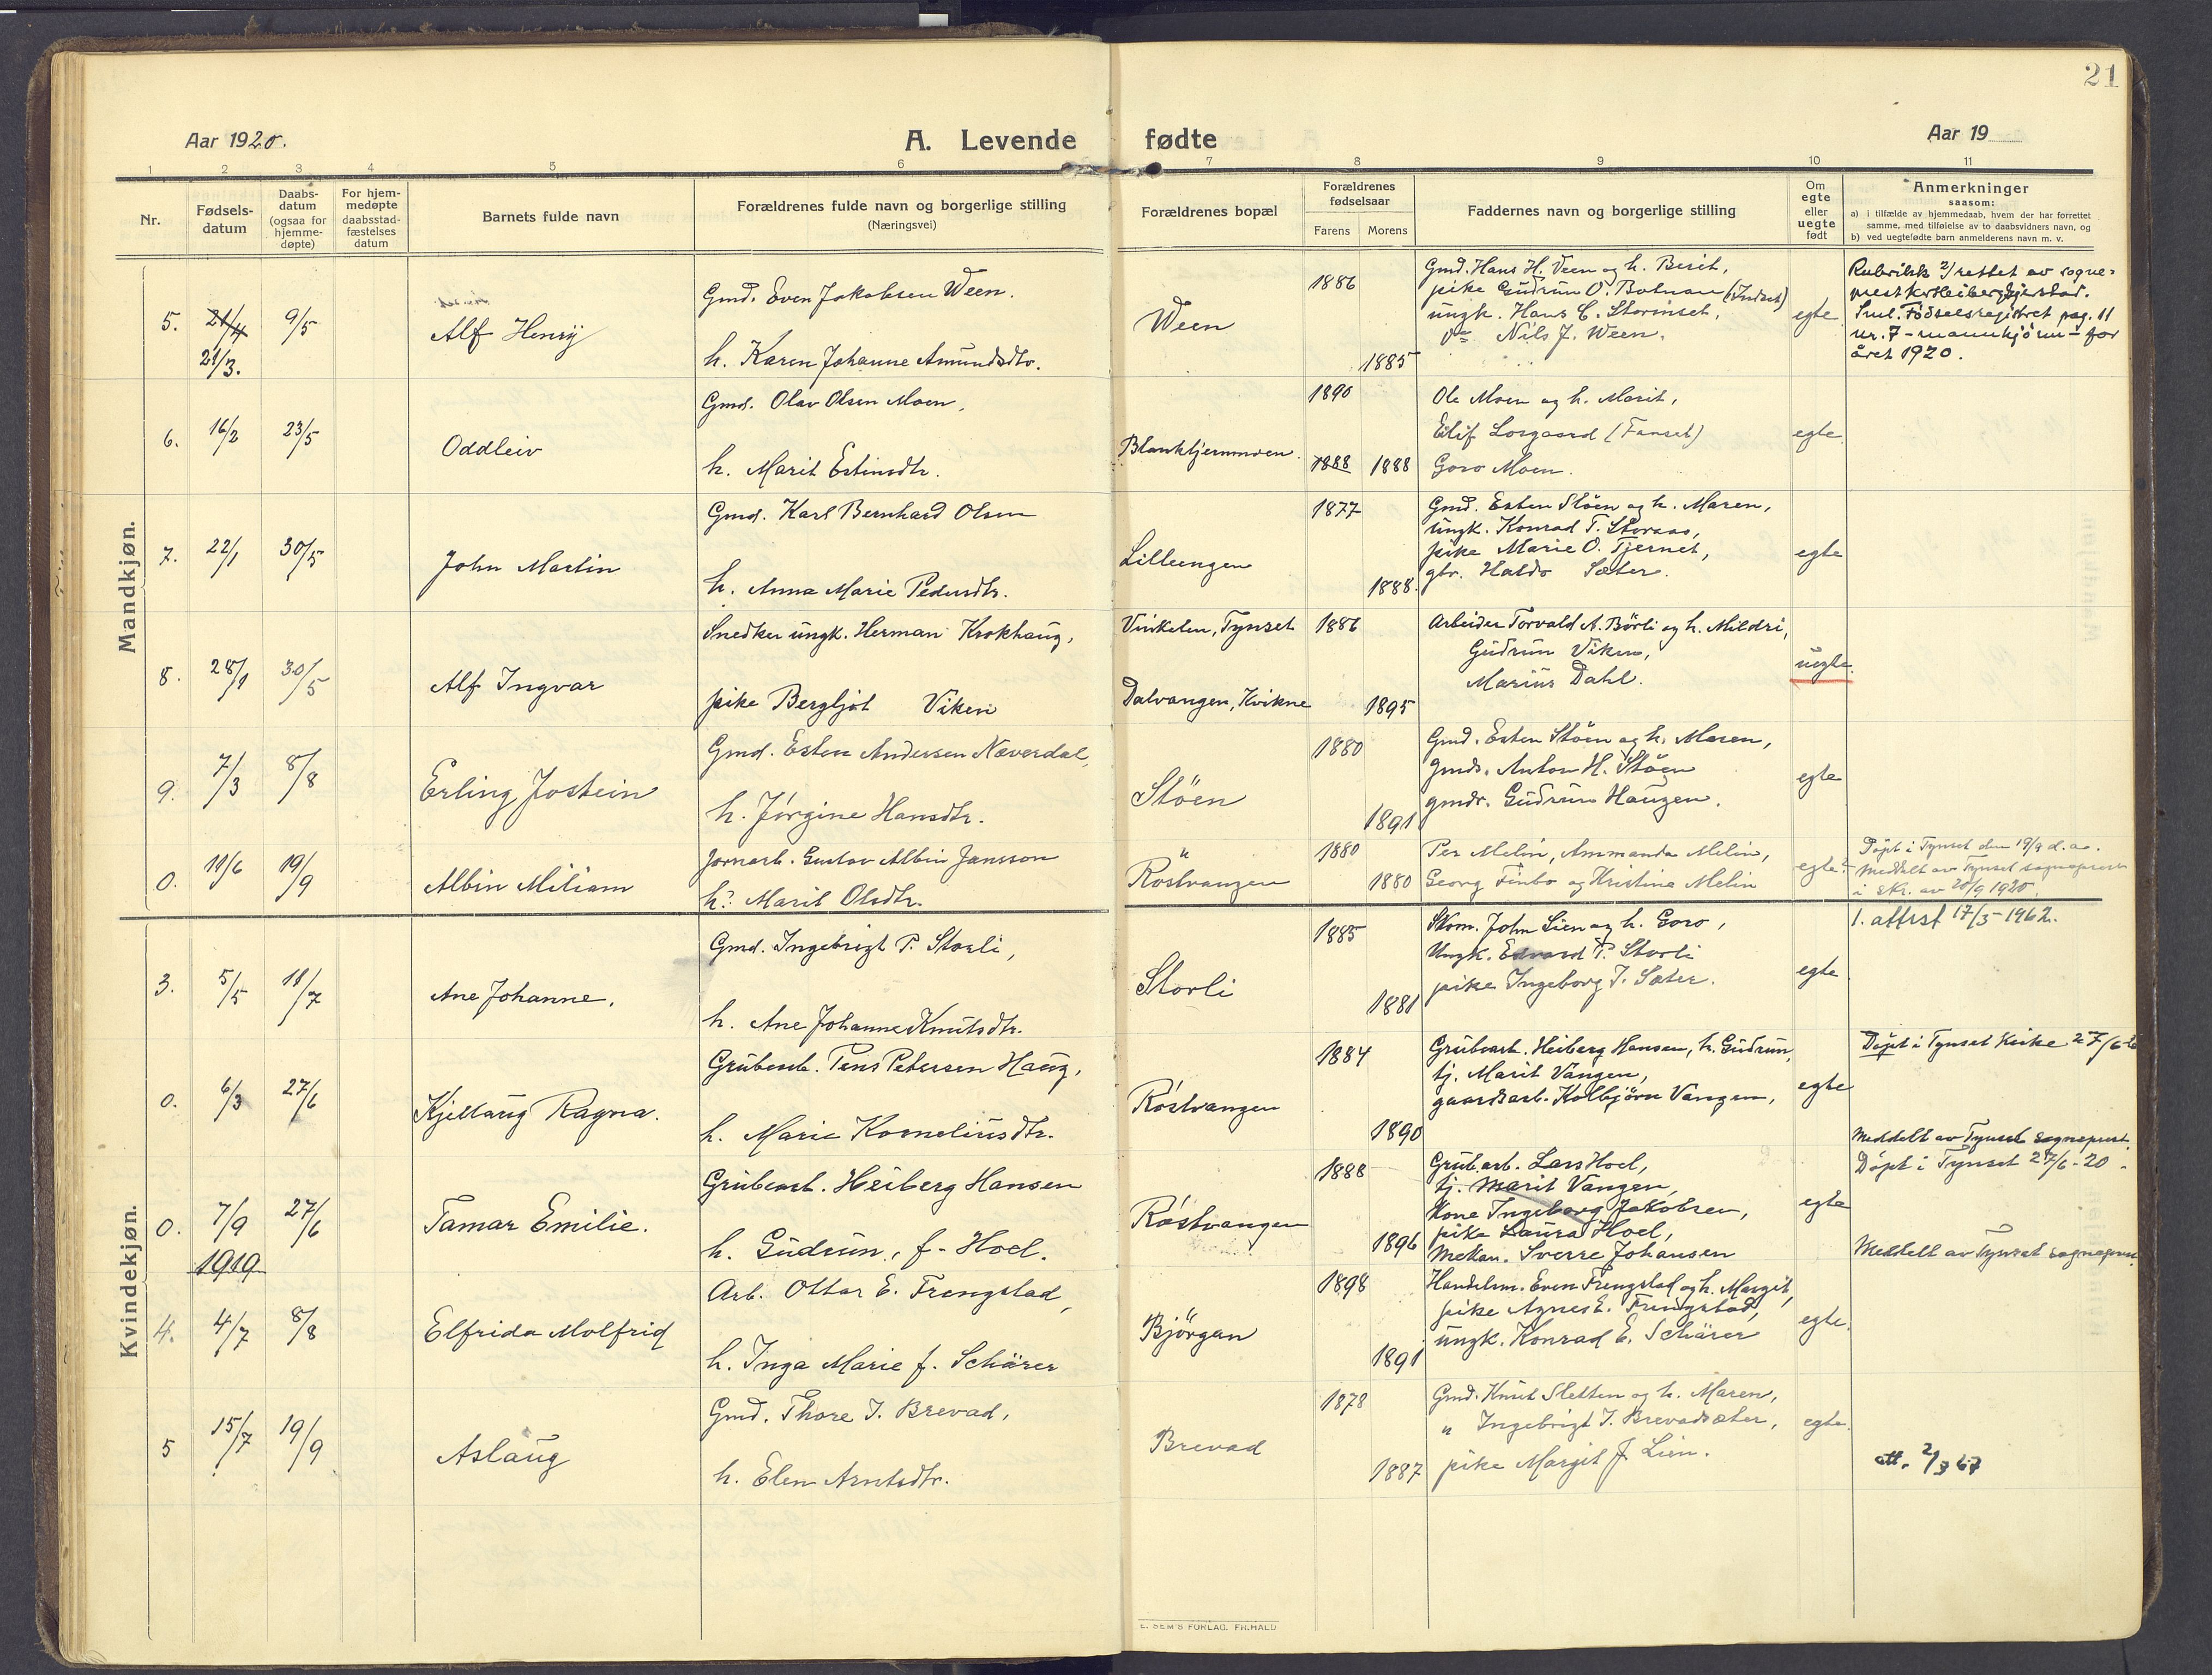 21
Aar 1920.
A. Levende fødte
Aar 19
1 2 3 4 5 6 7 8 9 10 11
Nr.
Fødsels-
datum
Daabs-
datum
(ogsaa for
hjemme-
døpte)
For hjem-
medøpte
daabsstad-
fæstelses
datum
Barnets fulde navn
Forældrenes fulde navn og borgerlige stilling
(Næringsvei)
Forældrenes bopæl
Forældrenes
fødselsaar
Farens Morens
Faddernes navn og borgerlige stilling
Om
egte
eller
uegte
født
Anmerkninger
saasom:
a) i tilfælde av hjemmedaab, hvem der har forrettet
samme, med tilføielse av to daabsvidners navn, og
b) ved uegtefødte barn anmelderens navn m. v.
Mandkjøn.
5. 21/4 9/5
21/3.
Alf Henry
Gmd. Even Jakobsen Ween.
h. Karen Johanne Amundsdtr.
Ween
1886
1885
Gmd. Hans H. Veen og h. Berit,
pike Gudrun O. Botnan (Indset)
ungk. Hans C. Storinset,
do Nils J. Ween.
egte
Rubrikk 2/ rettet av sogne-
prest
Sml. Födselsregistret pag. 11
nr. 7 - mannkjönn - for
året 1920.
6. 16/2 23/5
Oddleiv
Gmd. Olav Olsen Moen,
h. Marit Estinsdtr.
Blanktjernmoen.
1890
1888 1888
Ole Moen og h. Marit,
Eilif Losgaard (Fanset)
Goro Moen.
egte.
7. 22/1 30/5
John Martin
Gmd. Karl Bernhard Olsen
h. Anna Marie Pedersdtr.
Lilleengen
1877
1888.
Gmd. Esten Stöen og h. Maren,
ungk. Konrad T. Storaas,
pike Marie O. Tjernet,
gbr. Haldo Sæter.
egte
8. 28/1 30/5
Alf Ingvar
Snedker ungk. Herman Krokhaug,
pike Bergljot Viken
Vinkelen, Tynset
Dalvangen, Kvikne
1886
1895
Arbeider Torvald A. Börli og h. Mildri,
Gudrun Viken,
Marius Dahl.
uegte.
9. 7/3 8/8
Erling Jostein
Gmd. Esten Andersen Næverdal,
h. Jörgine Hansdtr.
Stöen
1880
1891
Gmd. Esten Stöen og h. Maren,
gmds. Anton H. Stöen
gmdr. Gudrun Haugen.
egte
0. 11/6 19/9
Albin Miliam
Jernarb. Gustav Albin Jansson
h? Marit Olsdtr.
Röstvangen
1880
1880
Per Melin, Ammanda Melin,
Georg Finbo og Kristine Melin
egte?
Döpt i Tynset den 19/9 d.a.
Meddelt av Tynset sogneprest
i skr. av 20/9 1920.
Kvindekjøn.
3. 5/5 18/7
Ane Johanne.
Gmd. Ingebrigt P. Storli,
h. Ane Johanne Knutsdtr.
Storli
1885
1881
Skom. John Lien og h. Goro,
Ungk. Edvard P. Storli
pike Ingeborg J. Sæter.
egte
1. attest 17/3-1962.
0. 6/3 27/6
Kjellaug Ragna.
Grubearb. Jens Petersen Haug,
h. Marie Korneliusdtr.
Röstvangen
1884
1890
Grubearb. Heiberg Hansen, h. Gudrun,
tj. Marit Vangen,
gaardsarb. Kolbjörn Vangen,
egte
Döpt i Tynset Kirke 27/6-20
Meddelt av Tynset sogneprest.
0. 7/9 27/6
1919
Tamar Emilie.
Grubearb. Heiberg Hansen
h. Gudrun, f. Hoel.
Röstvangen
1888
1896
Grub.arb. Lars Hoel,
tj. Marit Vangen,
Kone Ingeborg Jakobsen,
pike Laura Hoel,
Mekan. Sverre Johansen
egte
Döpt i Tynset 27/6-20 -
Meddelt av Tynset sogneprest.
4. 4/7 8/8
Elfrida Molfrid
Arb. Ottar E. Frengstad,
h. Inga Marie f. Schärer
Björgan
1898
1891
Handelsm. Even Frengstad og h. Margit,
pike Agnes E. Frengstad,
ungk. Konrad E. Schärer
egte.
5 15/7 19/9
Aslaug
Gmd. Thore I. Brevad,
h. Elen Arntsdtr.
Brevad
1878
1887
Gmd. Knut Sletten og h. Maren,
" Ingebrigt J. Brevadsæter,
pike Margit J. Lien.
egte.
att. 2/3 67
E. SEM'S FORLAG. FR.HALD